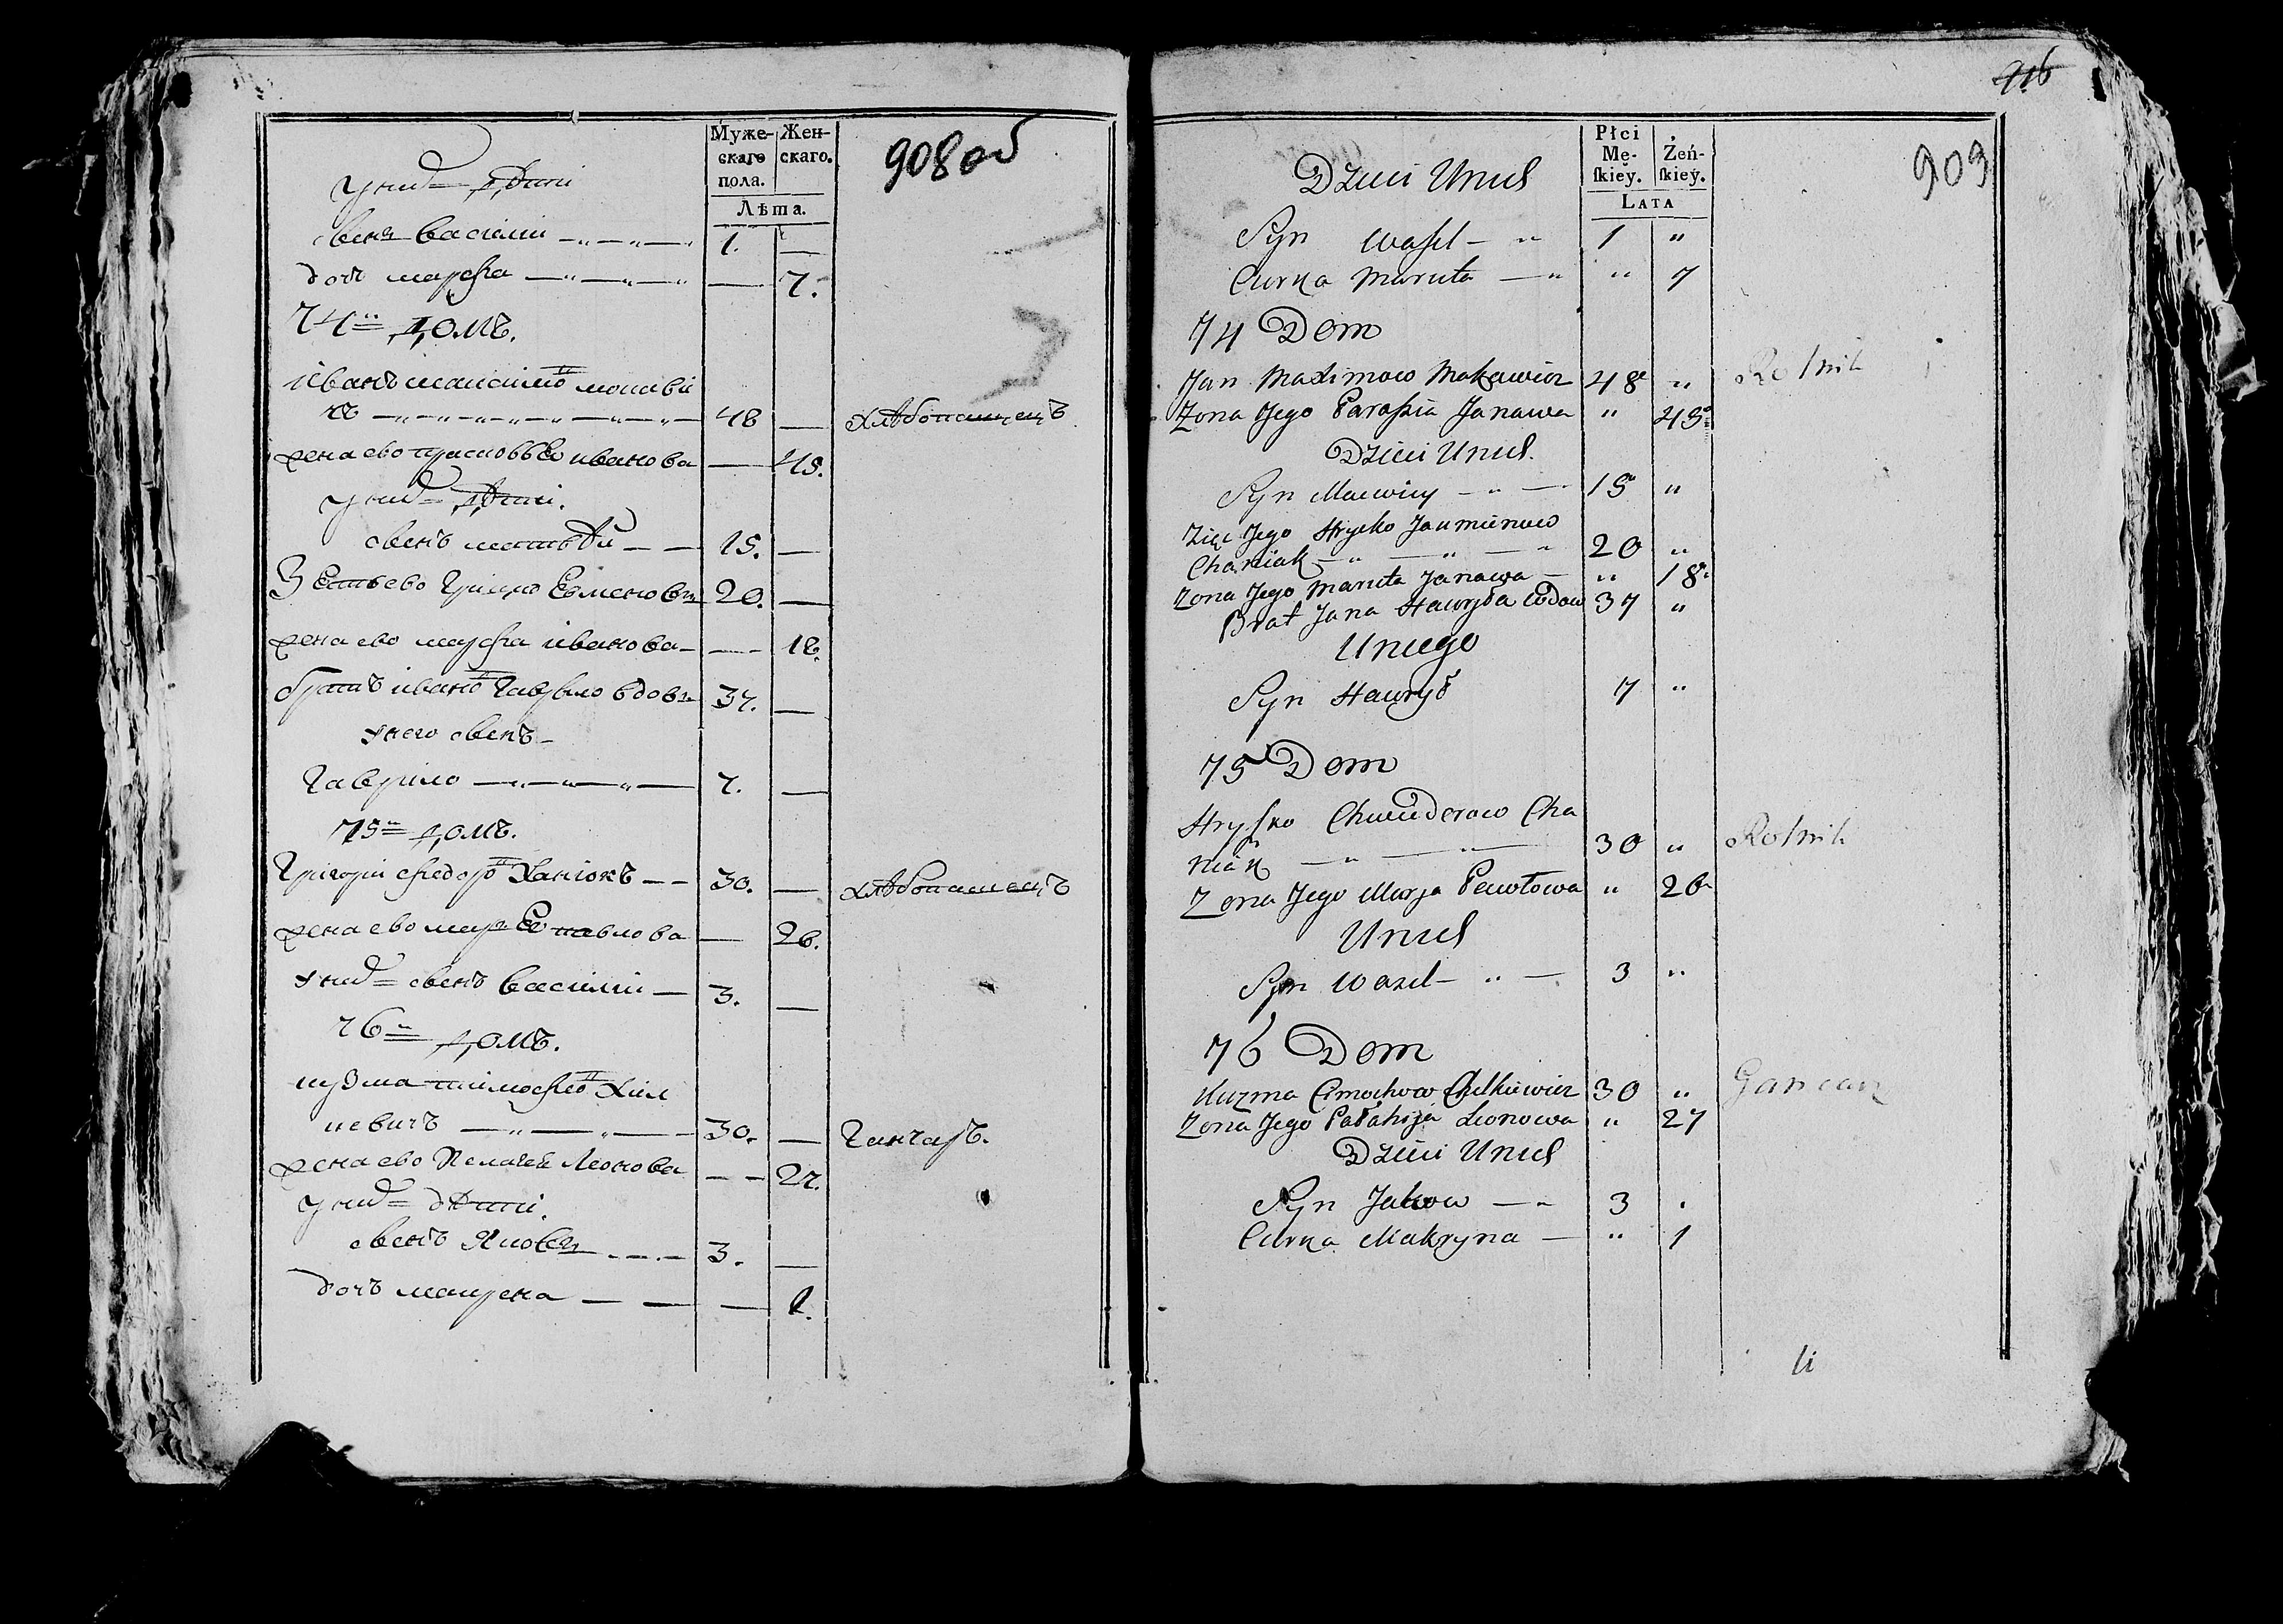 Муже-
скаго
пола.
Жен-
скаго.
Лѣта.
908 об
у ниⷯ дѣти
свенъ васілии 1. —
дочъ марѳа — 7.
74й домъ.
иванъ максімоⷡ макаві
чъ 48 — хлѣбопашецъ
жена ево прасковъѣ иванова — 45.
у ниⷯ дѣти.
свенъ матьѣй — — 15. —
Зеть ево Григко Евменовъ 20. —
жена ево марѳа иванова — — 18.
братъ иваноⷡ Гаврыло вдовъ 37. —
у него свенъ —
Гавріло 7. —
75й домъ.
Григорій ѳедороⷡ Ханюкъ — — 30. — хлѣбопашецъ
жена ево маръѣ павлова — 26.
у ниⷯ свенъ василии — 3. —
76й домъ.
кузма тімоѳеоⷡ Хил
кевичъ 30. — Ганчаръ.
жена ево Пелагеѣ Леонова — — 27.
у ниⷯ дѣти.
свенъ Яковъ 3. —
дочъ макрена — — — 1.
916
909
Płci
Mę-
skiey.
Żeń-
skiey.
LATA
Dzieci Unich
Syn Wasil — „ 1 „
Curka Maruta — „ „ 7
74 Dom
Jan Maximow Makawicz 48 „ Rolnik
Zona Jego Paraskia Janawa „ 45
Dzieci Unich.
Syn Maewiey — „ — 15 „
Zięc Jego Hrycko Jaumienow
Chaniak — „ — „ — „ 20 „
Zona Jego Maruta Janawa — „ 18
Brat Jana Hawryła Wdow 37 „
Uniego
Syn Hawrył 7 „
75 Dom
Hryszko Chwiederow Cha
niak — „ — „ — 30 „ Rolnik
Zona Jego Marja Pawłowa „ 26
Unich
Syn Wasil — „ — 3 „
76 Dom
Kuzma Cimochow Chilkiewicz 30 „ Garncarz
Zona Jego Pałahija Leonowa „ 27
Dzieci Unich
Syn Jakow — „ 3 „
Curka Makryna — „ 1